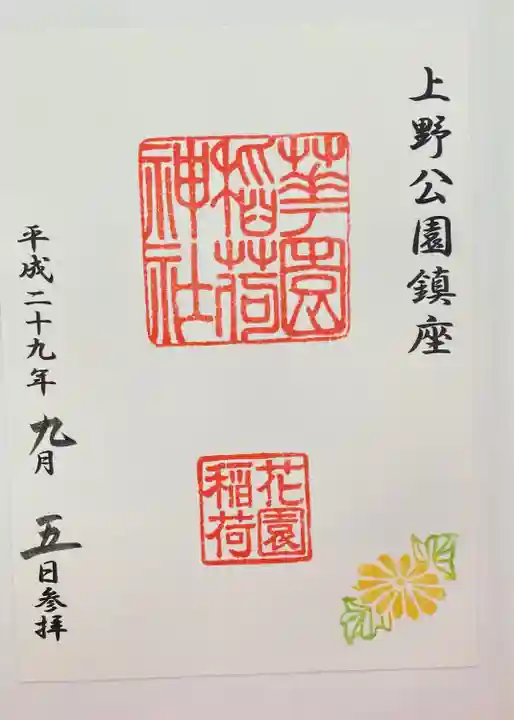 上野公園鎮座
華園
稲荷
神社
花園
稲荷
平成二十九年 九月 五日参拝